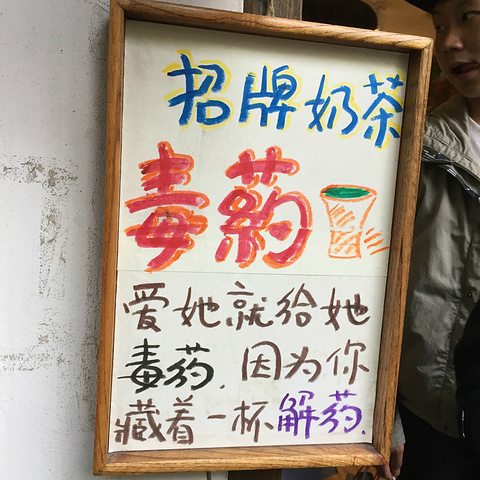 招牌奶茶
毒葯
爱她就给她
毒药,因为你
藏着一杯解药.